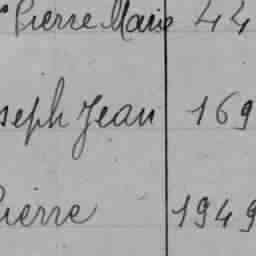 Pierre Marie 44
seph Jean 169
ierre 1949